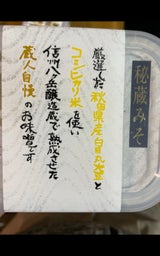 秘蔵みそ
厳選した秋田県産白目大豆と
コシヒカリ米を使い
信州八ヶ岳醸造蔵で熟成させた
蔵人自慢のお味噌です